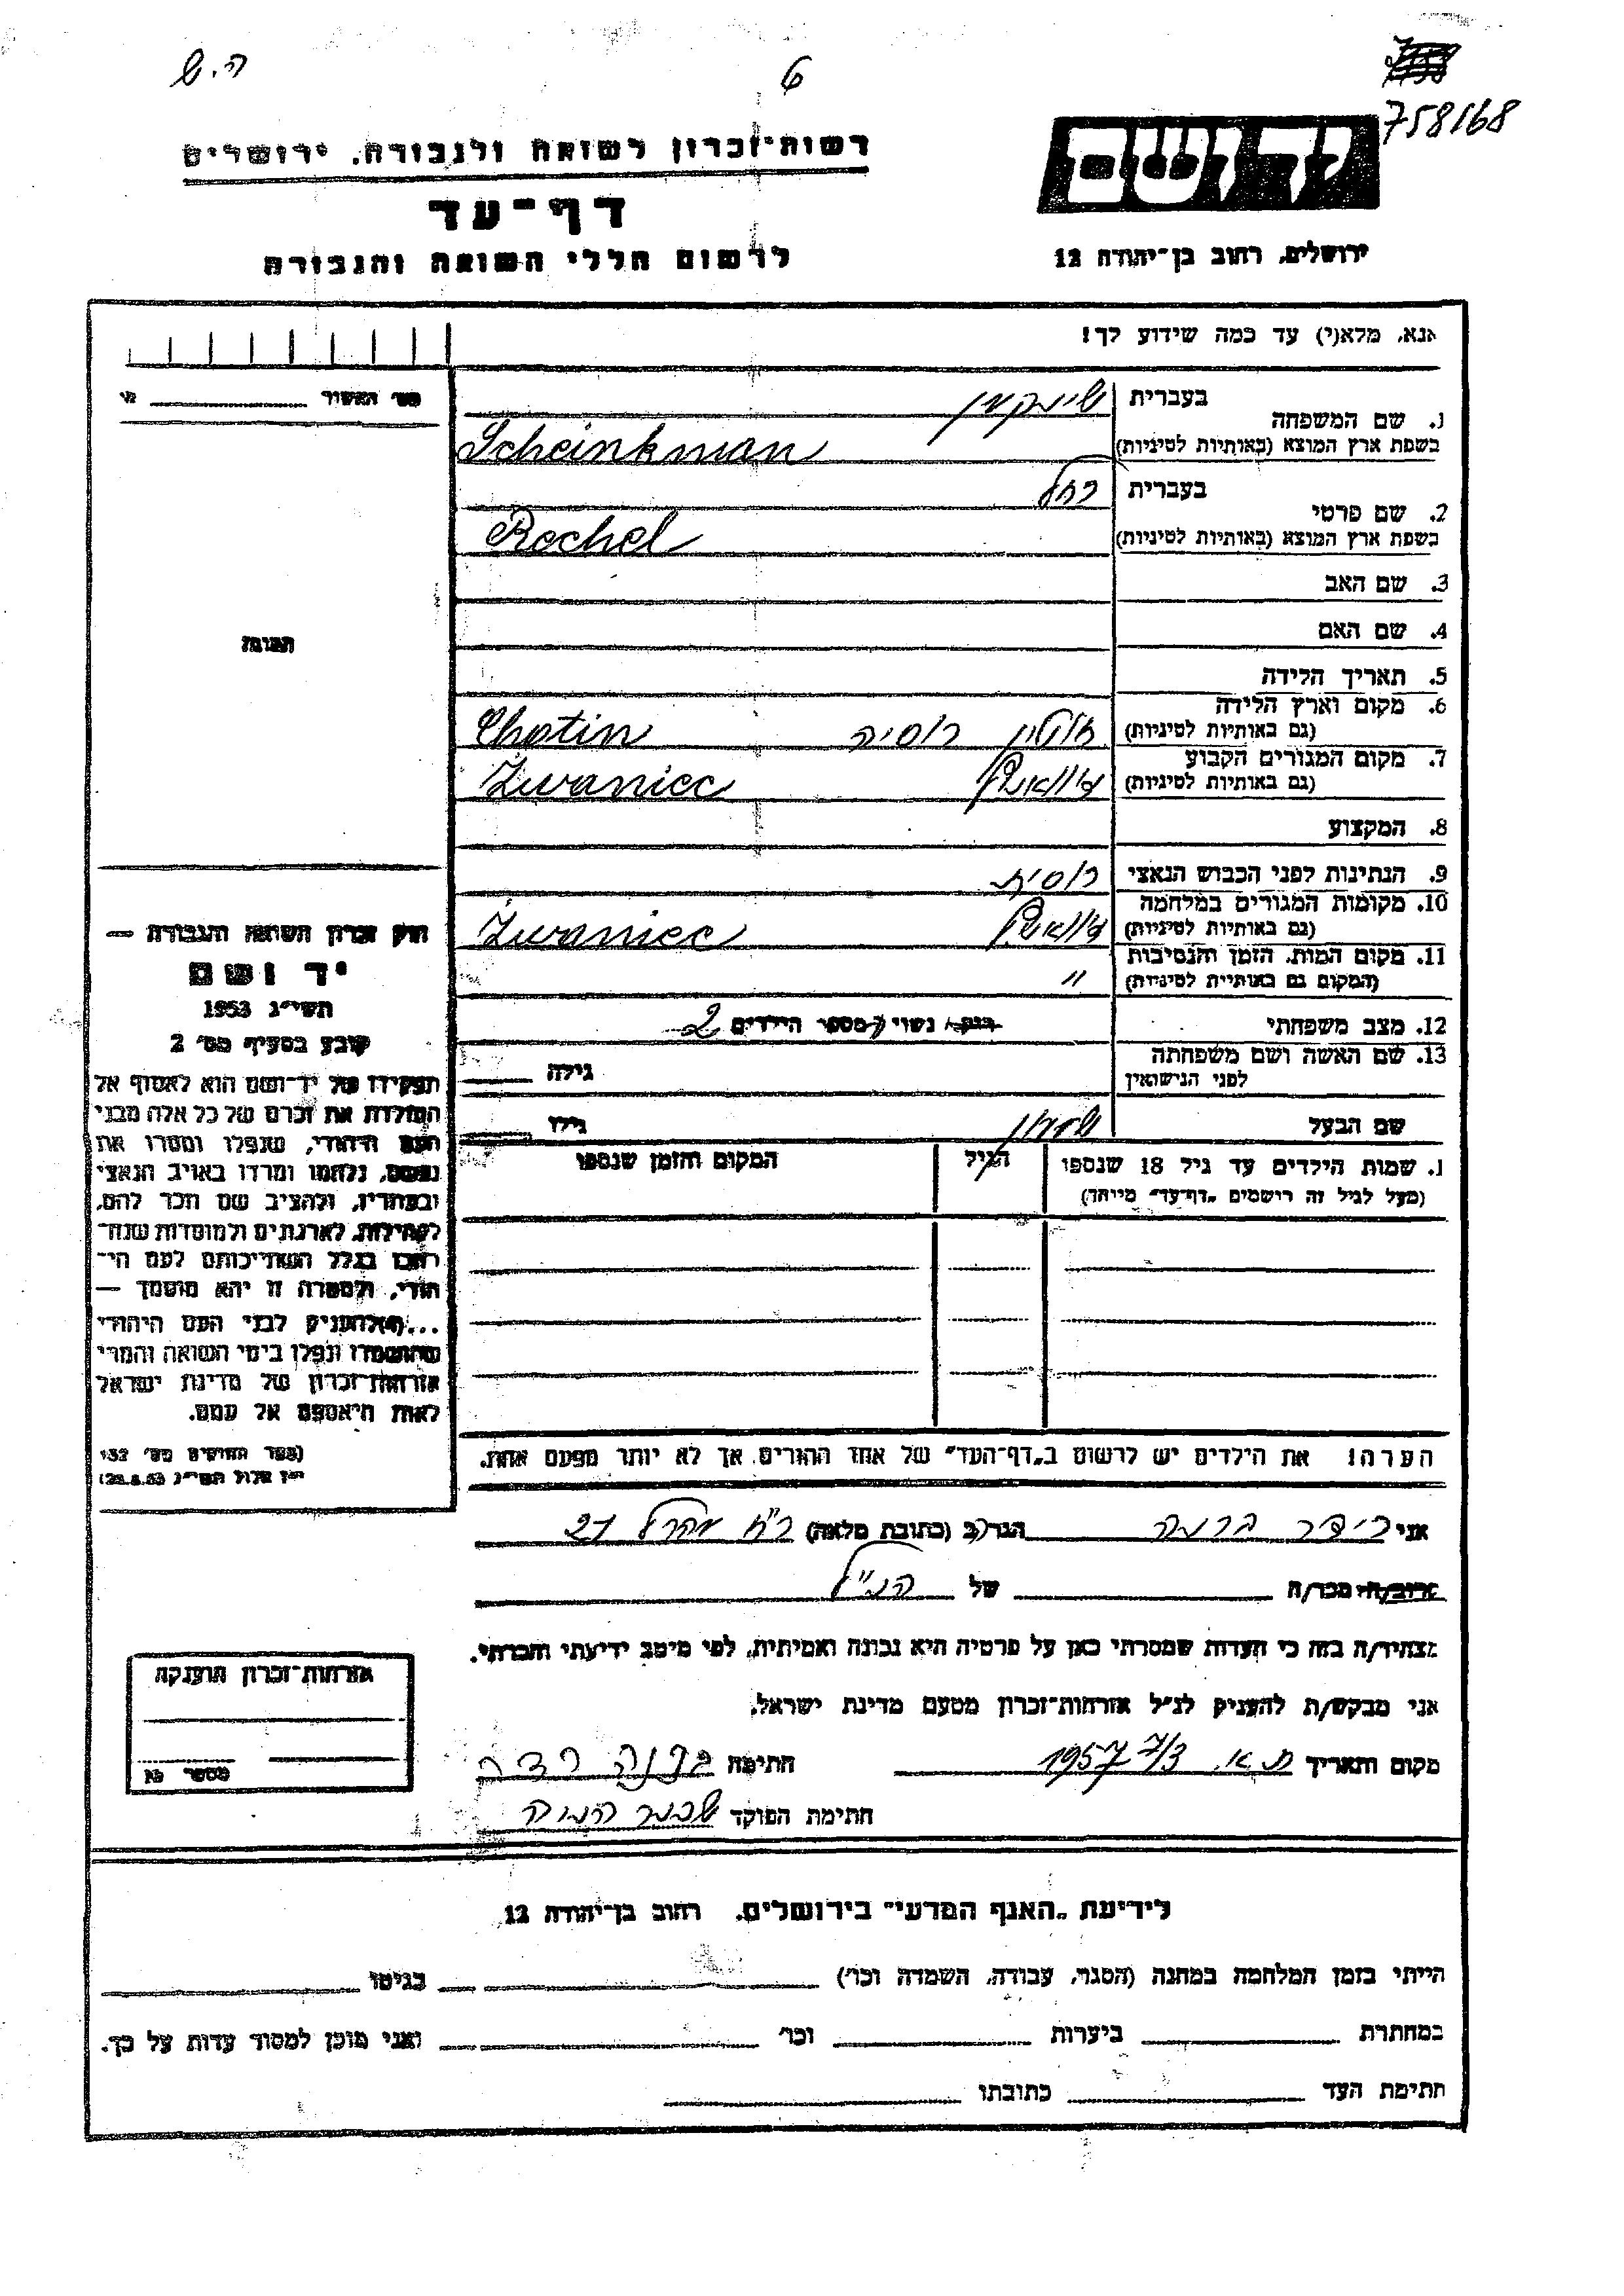 ה.ש
6
758168
יד ושם
רשות־זכרון לשואה ולגבורה, ירושלים
דף־עד
לרשום חללי השואה והגבורה
ירושלים, רחוב בן־יהודה 12
אנא, מלא(י) עד כמה שידוע לך!
מס׳ האשור
1. שם המשפחה בעברית שינקמן
בשפת ארץ המוצא (באותיות לטיניות) Scheinkman
2. שם פרטי בעברית רחל
בשפת ארץ המוצא (באותיות לטיניות) Rachel
3. שם האב
4. שם האם
5. תאריך הלידה
6. מקום וארץ הלידה
(גם באותיות לטיניות) חוטין רוסיה Chotin
7. מקום המגורים הקבוע
(גם באותיות לטיניות) Zwaniec
8. המקצוע
9. הנתינות לפני הכבוש הנאצי רוסית
10. מקומות המגורים במלחמה
(גם באותיות לטיניות) Zwaniec
11. מקום המות, הזמן והנסיבות
(המקום גם באותיות לטיניות) "
12. מצב משפחתי רווק/ נשוי/ מספר הילדים 2
13. שם האשה ושם משפחתה
לפני הנישואין גילה
שם הבעל גילו
1. שמות הילדים עד גיל 18 שנספו הגיל המקום והזמן שנספו
(מעל לגיל זה רושמים „דף־עד״ מיוחד)
הערה! את הילדים יש לרשום ב„דף־העד״ של אחד ההורים אך לא יותר מפעם אחת.
תמונה
חוק זכרון השואה והגבורה —
יד ושם
תשי״ג 1953
קובע בסעיף מס׳ 2
תפקידו של יד־ושם הוא לאסוף אל
המולדת את זכרם של כל אלה מבני
העם היהודי, שנפלו ומסרו את
נפשם, נלחמו ומרדו באויב הנאצי
ובעוזריו, ולהציב שם וזכר להם,
לקהילות, לארגונים ולמוסדות שנח־
רבו בגלל השתייכותם לעם הי־
הודי, ולמטרה זו יהא מוסמך —
...(4) להעניק לבני העם היהודי
שהושמדו ונפלו בימי השואה והמרי
אזרחות־זכרון של מדינת ישראל
לאות היאספם אל עמם.
(ספר החוקים מס׳ 132
י״ז אלול תשי״ג 28.8.53)
אני הגר/ב (כתובת מלאה) 21
קרוב/ה מכר/ה של הנ״ל
מצהיר/ה בזה כי העדות שמסרתי כאן על פרטיה היא נכונה ואמיתית, לפי מיטב ידיעתי והכרתי.
אני מבקש/ת להעניק לנ״ל אזרחות־זכרון מטעם מדינת ישראל.
מקום ותאריך ת.א. 7/3 1957 חתימה
חתימת הפוקד
אזרחות־זכרון הוענקה
מספר
לידיעת „האגף המדעי״ בירושלים, רחוב בן־יהודה 12
הייתי בזמן המלחמה במחנה (הסגר, עבודה, השמדה וכו׳) בגיטו
במחתרת ביערות וכו׳ ואני מוכן למסור עדות על כך.
חתימת העד כתובתו